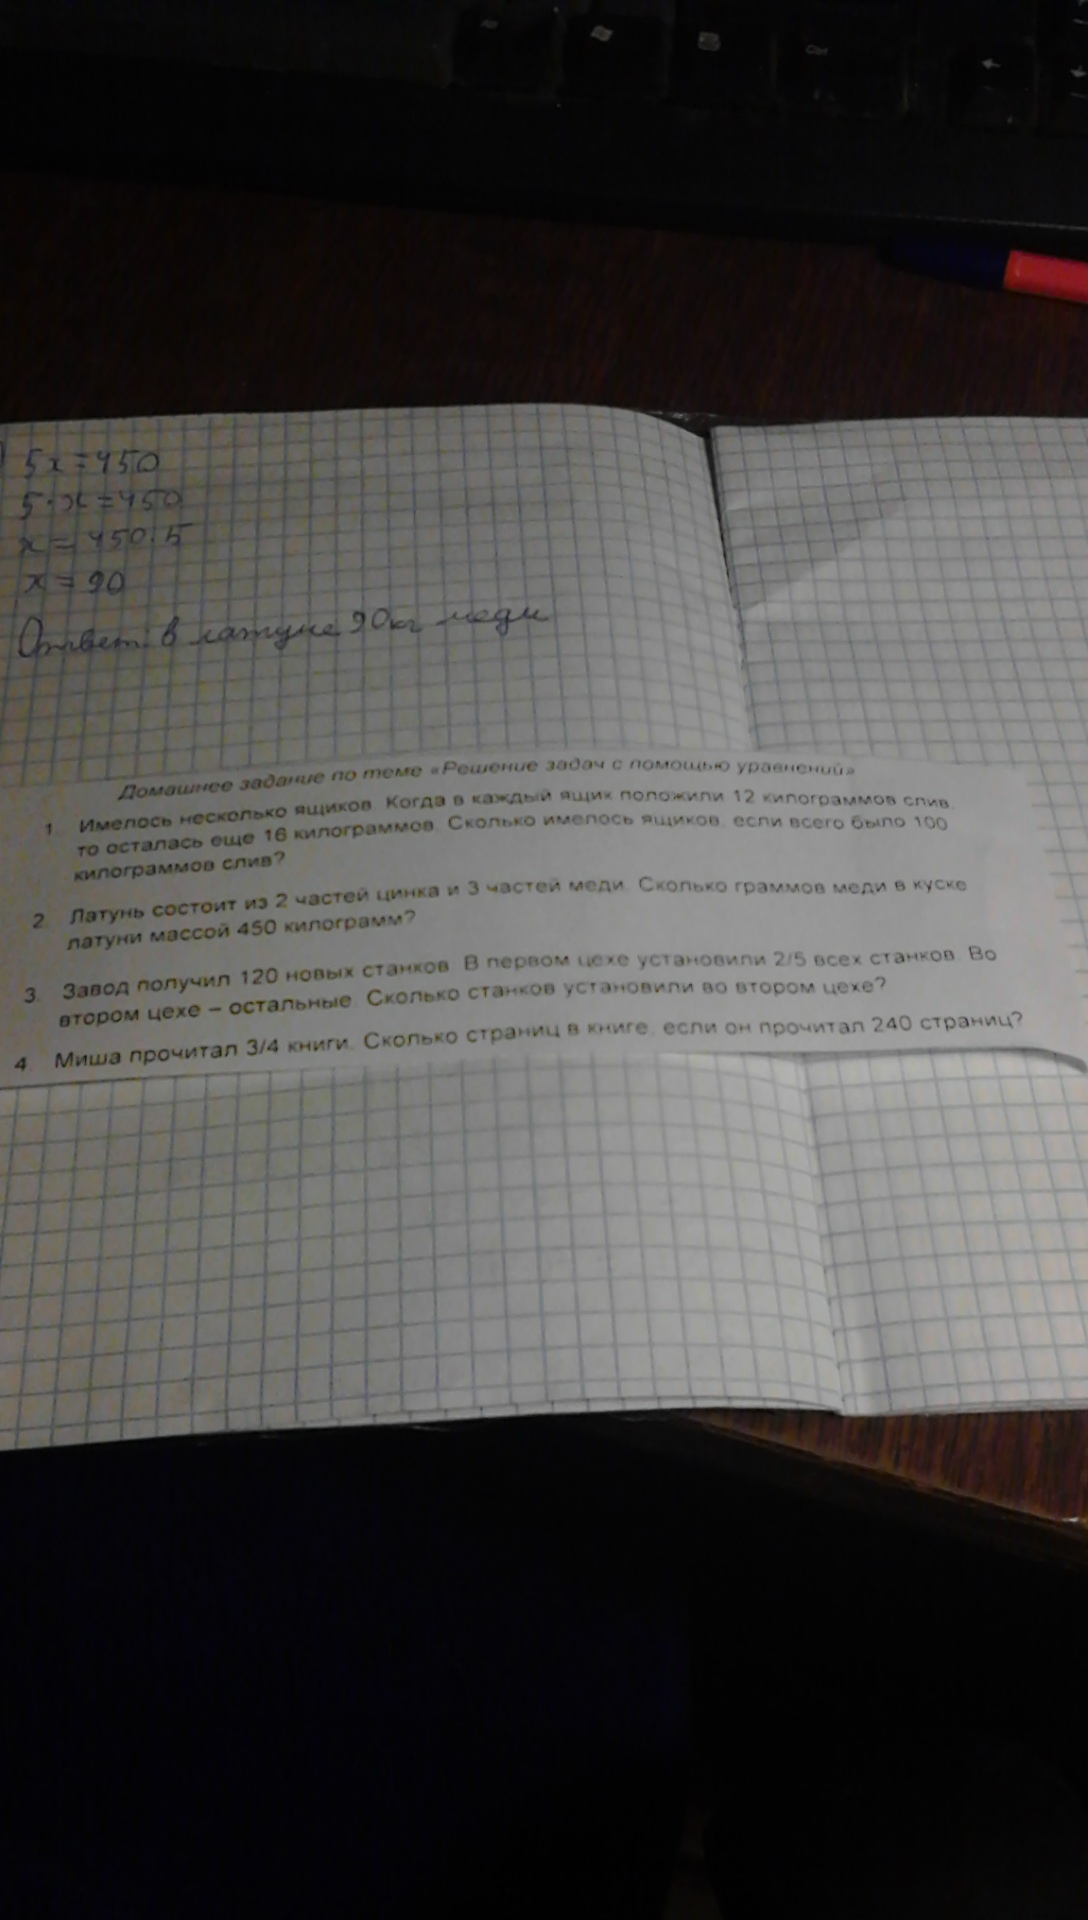 5x=450
5·x=450
x=450:5
x=90
Ответ: в латуне 90кг меди
Домашнее задание по теме «Решение задач с помощью уравнений»
1. Имелось несколько ящиков. Когда в каждый ящик положили 12 килограммов слив,
то осталась еще 16 килограммов. Сколько имелось ящиков, если всего было 100
килограммов слив?
2. Латунь состоит из 2 частей цинка и 3 частей меди. Сколько граммов меди в куске
латуни массой 450 килограмм?
3. Завод получил 120 новых станков. В первом цехе установили 2/5 всех станков. Во
втором цехе – остальные. Сколько станков установили во втором цехе?
4. Миша прочитал 3/4 книги. Сколько страниц в книге, если он прочитал 240 страниц?